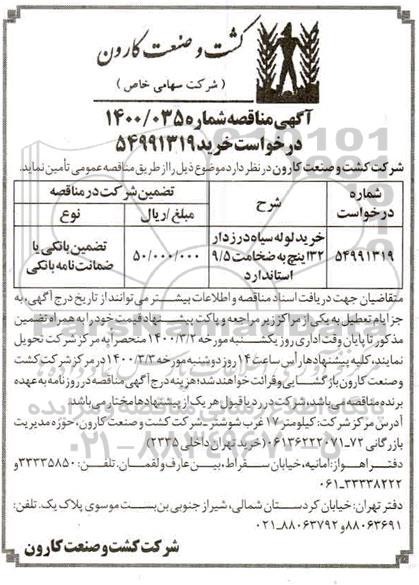 کشت و صنعت کارون
( شرکت سهامی خاص )
آگهی مناقصه شماره ۱۴۰۰/۰۳۵
درخواست خرید ۵۴۹۹۱۳۱۹
شرکت کشت و صنعت کارون در نظر دارد موضوع ذیل را از طریق مناقصه عمومی تأمین نماید.
شماره درخواست
شرح
تضمین شرکت در مناقصه
مبلغ/ریال
نوع
۵۴۹۹۱۳۱۹
خرید لوله سیاه درزدار
۳۲ اینچ به ضخامت ۹/۵
استاندارد
۵۰/۰۰۰/۰۰۰
تضمین بانکی یا
ضمانت نامه بانکی
متقاضیان جهت دریافت اسناد مناقصه و اطلاعات بیشتر می توانند از تاریخ درج آگهی، به
جز ایام تعطیل به یکی از مراکز زیر مراجعه و پاکت پیشنهاد قیمت خود را به همراه تضمین
مذکور تا پایان وقت اداری روز یکشنبه مورخه ۱۴۰۰/۳/۲ منحصراً به مرکز شرکت تحویل
نمایند، کلیه پیشنهادها رأس ساعت ۱۴ روز دوشنبه مورخه ۱۴۰۰/۳/۳ در مرکز شرکت کشت
و صنعت کارون بازگشایی و قرائت خواهند شد؛ هزینه درج آگهی مناقصه در روزنامه به عهده
برنده مناقصه می باشد، شرکت در رد یا قبول هر یک از پیشنهادها مختار می باشد
آدرس مرکز شرکت: کیلومتر ۱۷ غرب شوشتر - شرکت کشت و صنعت کارون، حوزه مدیریت
بازرگانی ۷۲-۰۶۱۳۶۲۲۲۰۷۱ (خرید تهران داخلی ۲۳۳۵)
دفتر اهواز: امانیه، خیابان سقراط، بین عارف و لقمان. تلفن: ۳۳۳۳۵۸۵۰ و
۰۶۱-۳۳۳۳۸۲۲۲
دفتر تهران: خیابان کردستان شمالی، شیراز جنوبی بن بست موسوی پلاک یک. تلفن:
۸۸۰۶۳۶۹۱ و ۸۸۰۶۳۷۹۲-۰۲۱
شرکت کشت و صنعت کارون